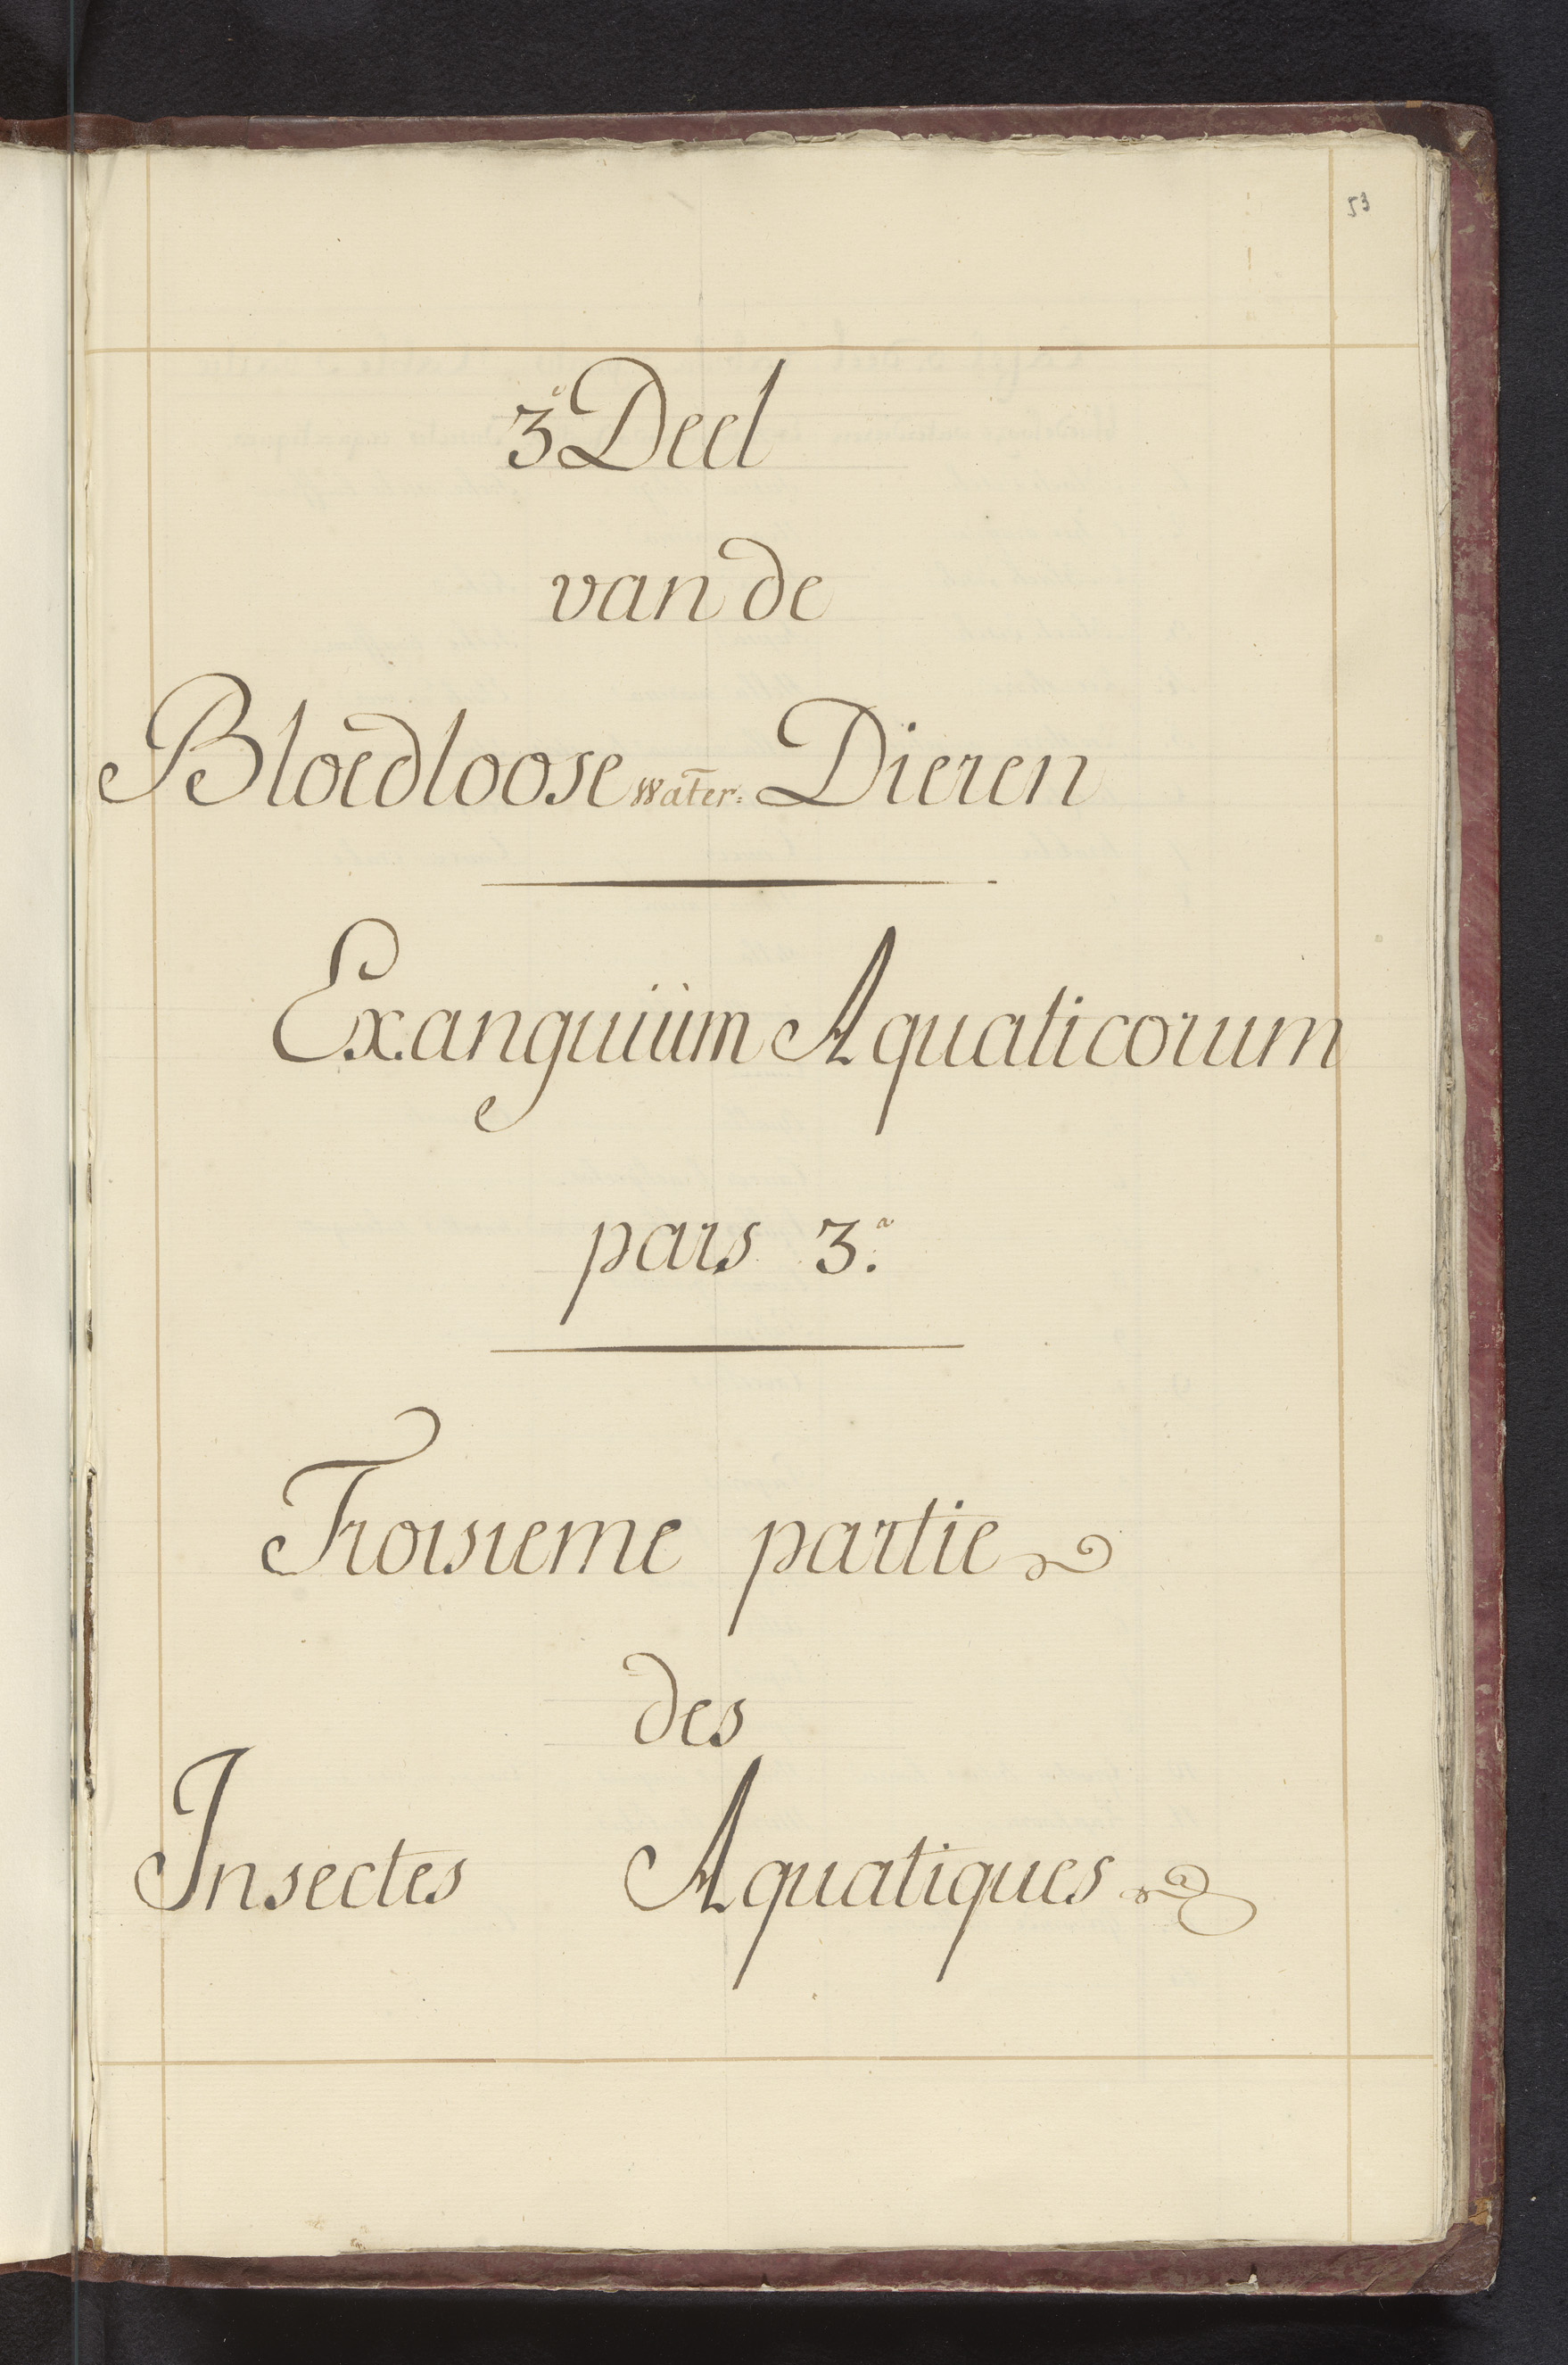 53
3e Deel
van de
Bloedloose water: Dieren
Exanguium Aquaticorum
pars 3.a
Troisieme partie
des
Insectes Aquatiques